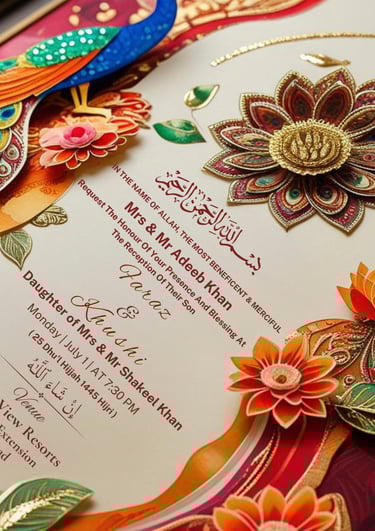 بسم الله الرحمن الرحيم
IN THE NAME OF ALLAH, THE MOST BENEFICENT & MERCIFUL
Mrs & Mr Adeeb Khan
Request The Honour Of Your Presence And Blessing At
The Reception Of Their Son
Faraz
&
Khushi
Daughter of Mrs & Mr Shakeel Khan
Monday | July 1 | AT 7:30 PM
(25 Dhu'l Hijjah 1445 Hijri)
إِنْ شَاءَ اللَّٰه
Venue
View Resorts
Extension